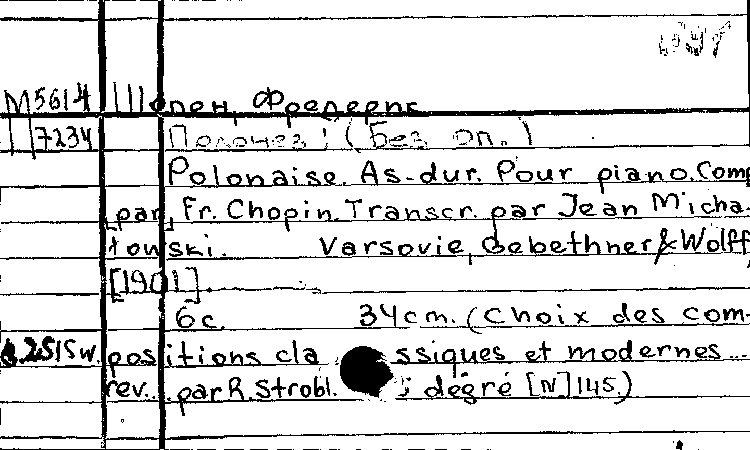 М5614 Шопен, Фредерик
7234 Полонез; (Без оп.)
Polonaise. As-dur. Pour piano. Comp
[par] Fr. Chopin. Transcr. par Jean Micha-
łowski. Varsovie, Gebethner & Wolff
[1901].
6с. 34cm. (Choix des com-
2515w. positions classiques et modernes...
rev... par R. Strobl. degré [N] 145.)